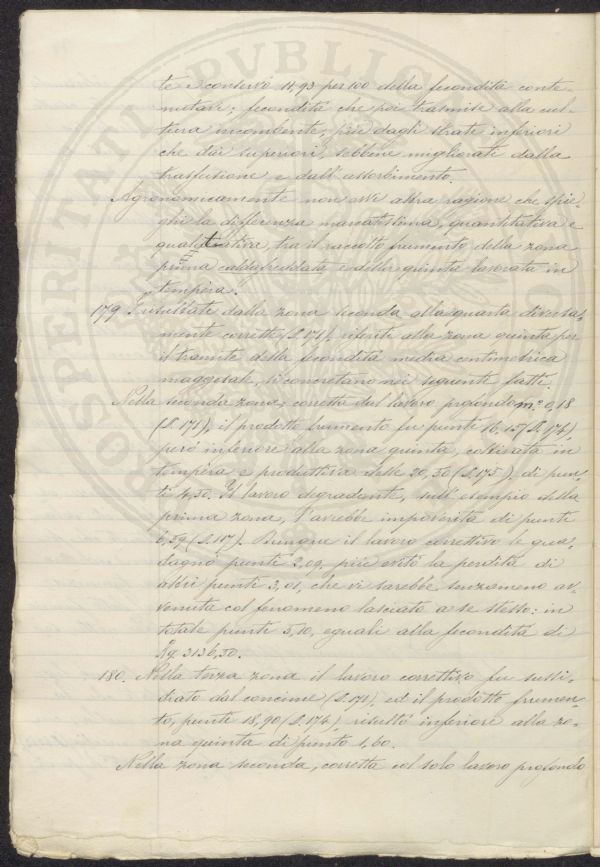 te e conservò 11,93 per 100 della fecondità conte-
nutali; fecondità che poi trasmise alla cul-
tura incombente, più dagli strati inferiori
che dai superiori, sebbene migliorati dalla
trasfusione e dall'assorbimento.
Agronomicamente non avvi altra ragione che spie-
ghi la differenza marcatissima, quantitativa e
qualitativa, tra il raccolto frumento della zona
prima caldafreddata e della quinta lavorata in
tempera.
179. I risultati dalla zona seconda alla quarta diversa-
mente corrette (§.171), riferiti alla zona quinta per
il tramite della fecondità media centimetrica
maggesale, si concretano nei seguenti fatti.
Nella seconda zona, corretta dal lavoro profondo m.º 0,18
(§.171), il prodotto frumento fu punti 16,15 (§.174),
però inferiore alla zona quinta, coltivata in
tempera e produttiva delle 20,50 (§.175), di pun-
ti 4,30. Il lavoro digradante, sull'esempio della
prima zona, l'avrebbe impoverita di punti
6,39 (§.117). Dunque il lavoro correttivo le gua-
dagnò punti 2,09, più evitò la perdita di
altri punti 3,01, che vi sarebbe senzameno av-
venuta col fenomeno lasciato a se stesso: in
totale punti 5,10, eguali alla fecondità di
Kg. 3136,50.
180. Nella terza zona il lavoro correttivo fu susti-
trato dal concime (§.171), ed il prodotto frumen-
to, punti 18,90 (§.174), risultò inferiore alla zo-
na quinta di punto 1,60.
Nella zona seconda, corretta col solo lavoro profondo
PROSPERITATI PVBLICAE